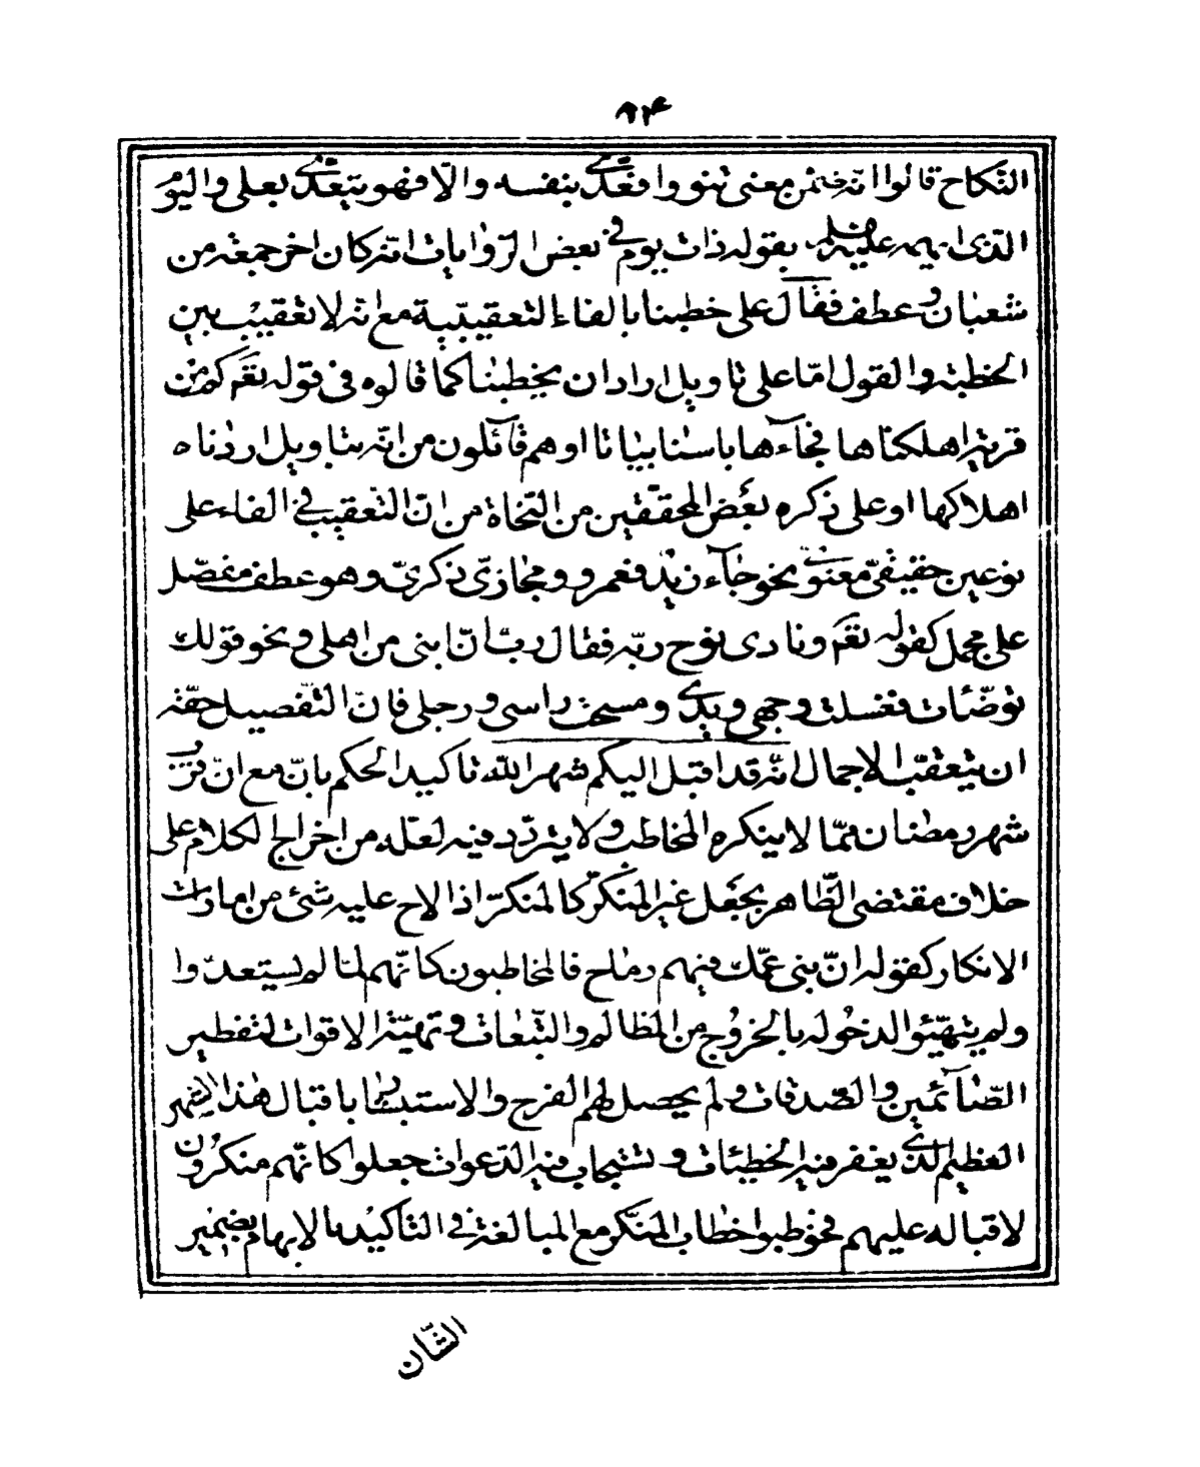 ٨٤
النّكاح قالوا انّه ضمّن معنى تنووا فعدّى بنفسه والّا فهو يتعدّى بعلى واليوم
الّذى ابهمه عليه بقوله ذات يوم فى بعض الرّوايات انّه كان اخر جمعة من
شعبان وعطف فقال على خطبنا بالفاء التعقيبيّة مع انّه لا تعقيب بين
الخطبة والقول امّا على تاويل اراد ان يخطبنا كما قالوه فى قوله تعم كم من
قرية اهلكناها فجاءها باسنا بياتا او هم قائلون من انّه بتاويل اردنا
اهلاكها او على ذكره بعض المحقّقين من النّحاة من انّ التّعقيب فى الفاء على
نوعين حقيقىّ معنوىّ نحو جاء زيد فعمرو ومجازىّ ذكرىّ وهو عطف مفصّل
على مجمل كقوله تعم ونادى نوح ربّه فقال ربّ انّ ابنى من اهلى ونحو قولك
توضّئات فغسلت وجهى ويدى ومسحت راسى ورجلى فانّ التّفصيل حقّه
ان يتعقّب الاجمال انّه قد اقبل اليكم شهر الله تاكيد الحكم بانّ مع انّ قرب
شهر رمضان ممّا لا ينكره المخاطب ولا يتردّد فيه لعلّه من اخراج الكلام على
خلاف مقتضى الظّاهر بجعل غير المنكر كالمنكر اذا لاح عليه شئ من امارات
الانكار كقوله انّ بنى عمّك فيهم رماح فالمخاطبون كانّهم لمّا لم يستعدّوا
ولم يتهيّئوا لدخوله بالخروج من المظالم والتّبعات وتهيّة الاقوات لتفطير
الصّائمين والصّدقات ولم يحصل لهم الفرح والاستبشار باقبال هذا الشهر
العظيم الّذى يغفر فيه الخطيئات وتستجاب فيه الدّعوات جعلوا كانّهم منكرون
لاقباله عليهم فخوطبوا خطاب المنكر مع المبالغة فى التاكيد بالابهام بضمير
الشّان